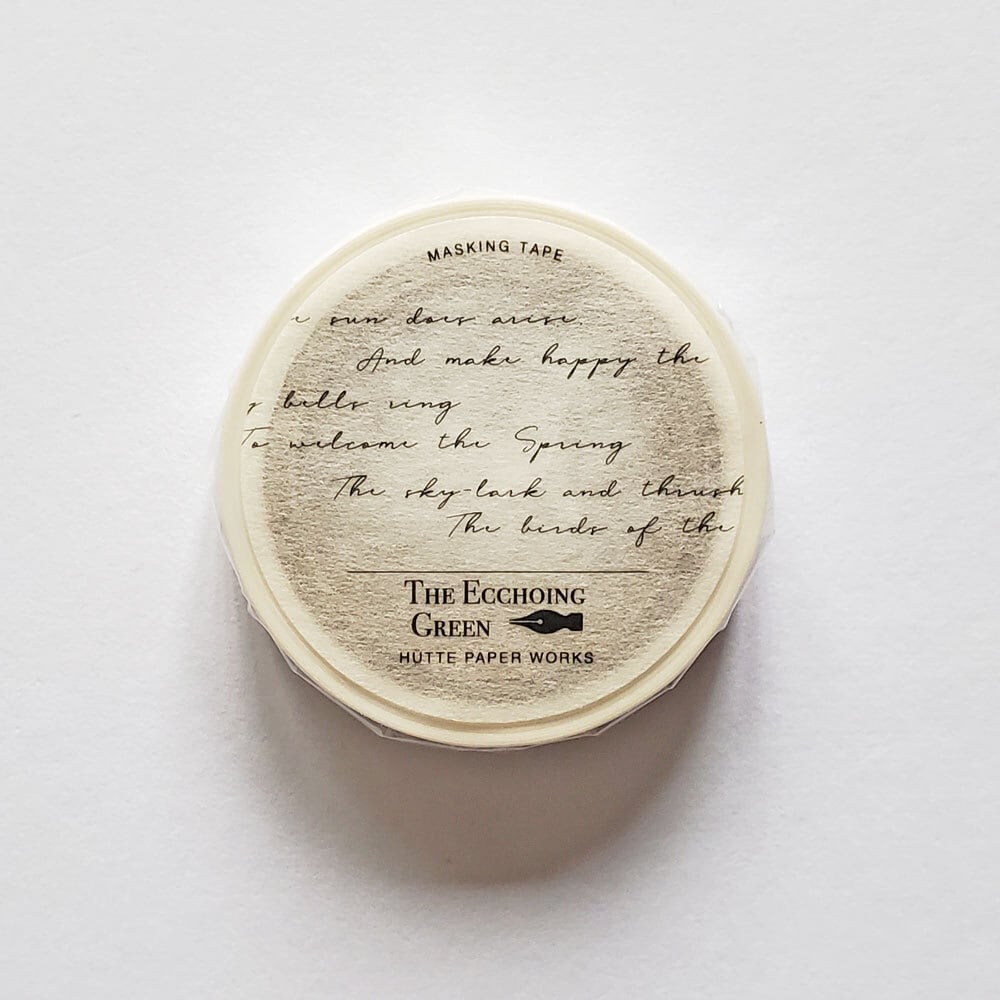 MASKING TAPE
e sun does arise,
And make happy the
y bells ring
To welcome the Spring
The sky-lark and thrush
The birds of the
THE ECCHOING
GREEN
HÜTTE PAPER WORKS